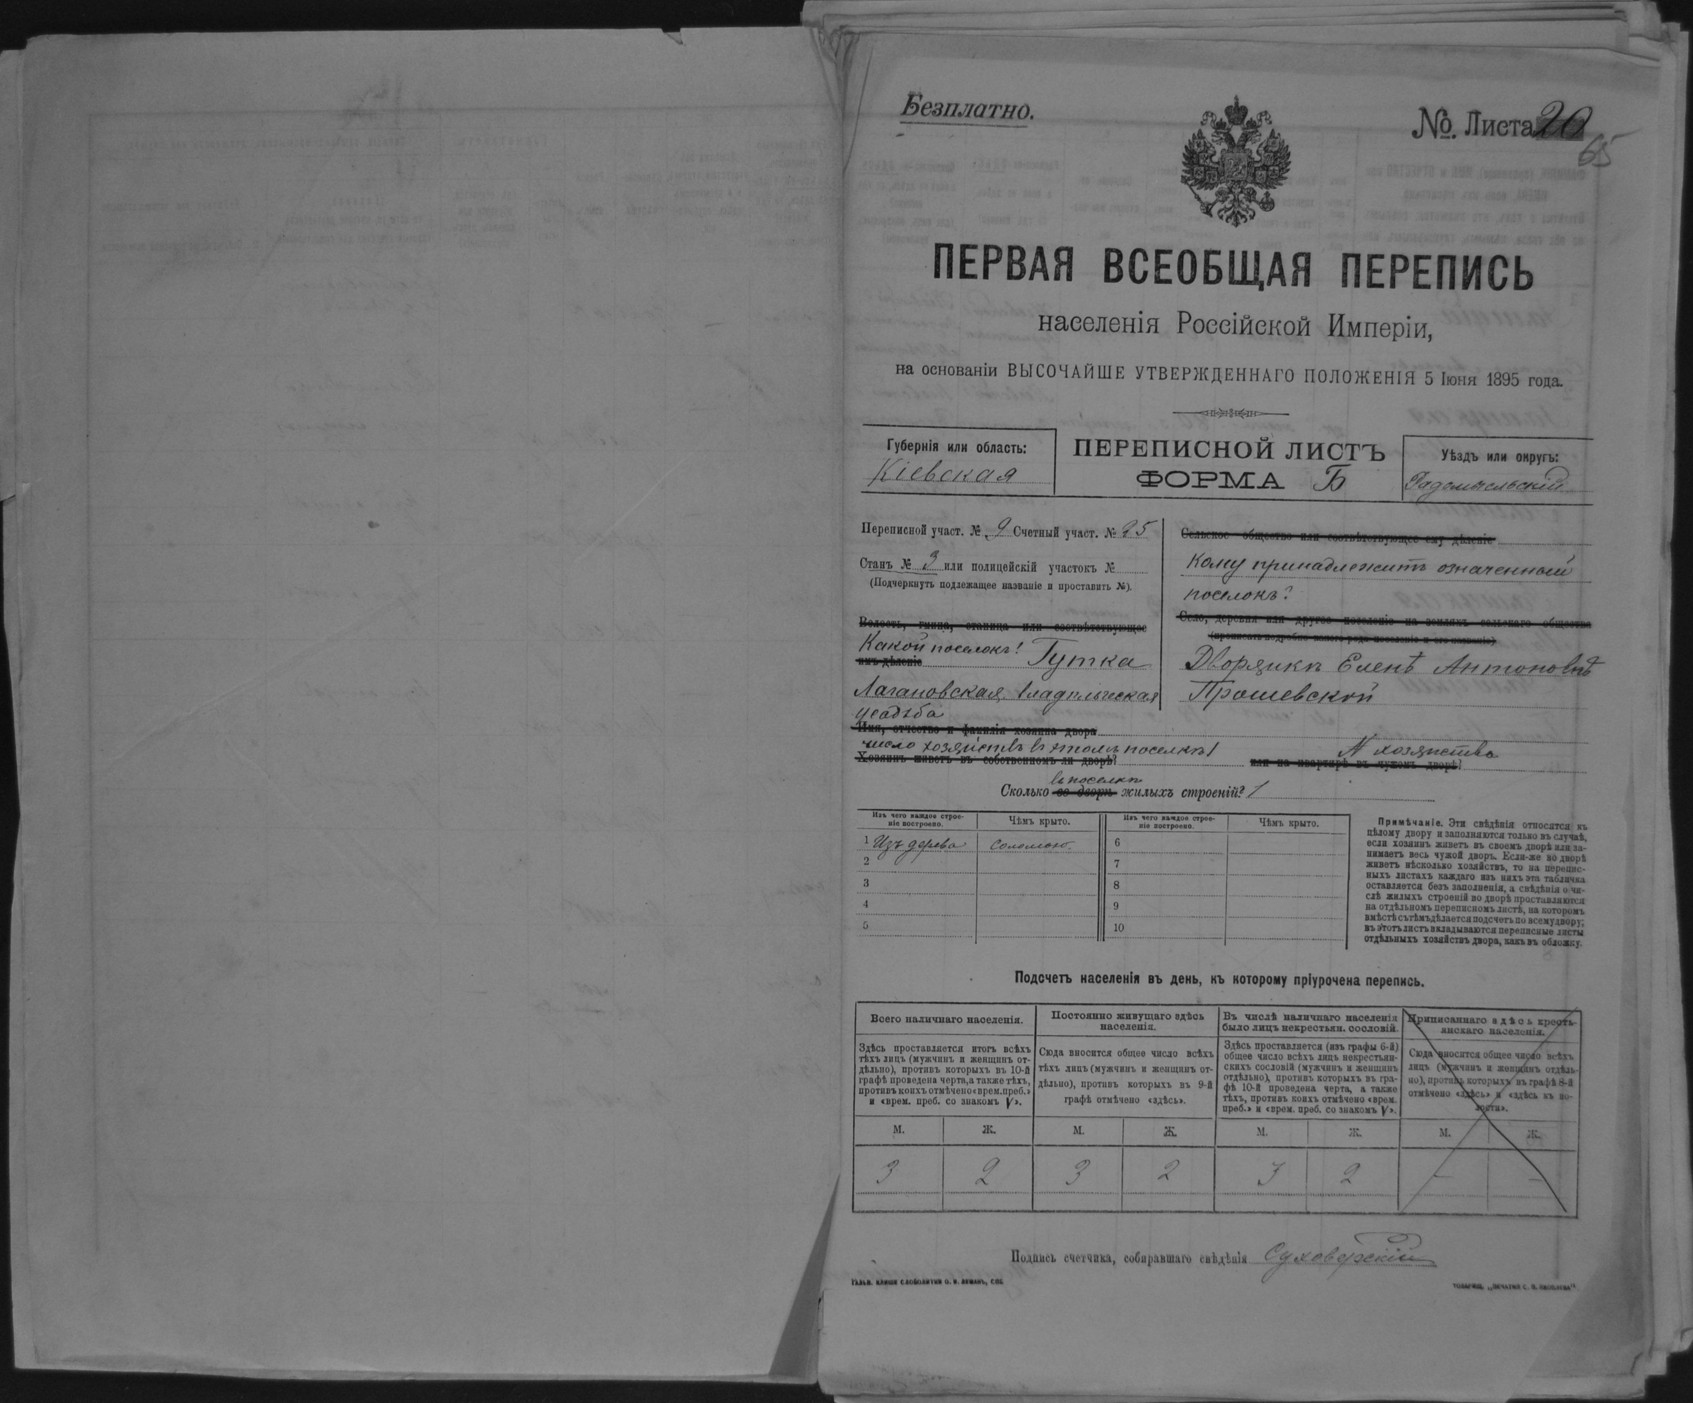 Безплатно.
№. Листа 20
65
ПЕРВАЯ ВСЕОБЩАЯ ПЕРЕПИСЬ
населенія Россійской Имперіи,
на основаніи ВЫСОЧАЙШЕ УТВЕРЖДЕННАГО ПОЛОЖЕНІЯ 5 Іюня 1895 года.
Губернія или область:
Кіевская
ПЕРЕПИСНОЙ ЛИСТЪ
ФОРМА Б
Уѣздъ или округъ:
Радомысльскій
Переписной участ. № 9 Счетный участ. № 25
Станъ № 3 или полицейскій участокъ №
(Подчеркнуть подлежащее названіе и проставить №).
Волость, гмина, станица или соотвѣтствующее
Какой поселокъ? Гутка
имъ дѣленіе
Лагановская, владѣльческая
усадьба
Сельское общество или соотвѣтствующее ему дѣленіе
Кому принадлежитъ означенный
поселокъ?
Село, деревня или другое поселеніе на земляхъ сельскаго общества
(прописать подробно какого рода поселеніе и его названіе)
Дворянкѣ Еленѣ Антоновнѣ
Прошевской
Имя, отчество и фамилія хозяина двора
число хозяйствъ въ этомъ поселкѣ 1
N хозяйства
Хозяинъ живетъ въ собственномъ ли дворѣ?
или на квартирѣ въ чужомъ дворѣ?
въ поселкѣ
Сколько во дворѣ жилыхъ строеній? 1
Изъ чего каждое строеніе построено.
Чѣмъ крыто.
Изъ чего каждое строеніе построено.
Чѣмъ крыто.
1 Изъ дерева соломою 6
2 7
3 8
4 9
5 10
Примѣчаніе. Эти свѣдѣнія относятся къ
цѣлому двору и заполняются только въ случаѣ,
если хозяинъ живетъ въ своемъ дворѣ или за-
нимаетъ весь чужой дворъ. Если-же во дворѣ
живетъ нѣсколько хозяйствъ, то на перепис-
ныхъ листахъ каждаго изъ нихъ эта табличка
оставляется безъ заполненія, а свѣдѣнія о чи-
слѣ жилыхъ строеній во дворѣ проставляются
на отдѣльномъ переписномъ листѣ, на которомъ
вмѣстѣ съ тѣмъ дѣлается подсчетъ по всему двору;
въ этотъ листъ вкладываются переписные листы
отдѣльныхъ хозяйствъ двора, какъ въ обложку.
Подсчетъ населенія въ день, къ которому пріурочена перепись.
Всего наличнаго населенія.
Здѣсь проставляется итогъ всѣхъ
тѣхъ лицъ (мужчинъ и женщинъ от-
дѣльно), противъ которыхъ въ 10-й
графѣ проведена черта, а также тѣхъ,
противъ коихъ отмѣчено «врем. преб.»
и «врем. преб. со знакомъ V».
Постоянно живущаго здѣсь
населенія.
Сюда вносится общее число всѣхъ
тѣхъ лицъ (мужчинъ и женщинъ от-
дѣльно), противъ которыхъ въ 9-й
графѣ отмѣчено «здѣсь».
Въ числѣ наличнаго населенія
было лицъ некрестьян. сословій.
Здѣсь проставляется (изъ графы 6-й)
общее число всѣхъ лицъ некрестьян-
скихъ сословій (мужчинъ и женщинъ
отдѣльно), противъ которыхъ въ гра-
фѣ 10-й проведена черта, а также
тѣхъ, противъ коихъ отмѣчено «врем.
преб.» и «врем. преб. со знакомъ V».
Приписаннаго здѣсь кресть-
янскаго населенія.
Сюда вносится общее число всѣхъ
лицъ (мужчинъ и женщинъ отдѣль-
но), противъ которыхъ въ графѣ 8-й
отмѣчено «здѣсь» и «здѣсь въ во-
лости».
М. Ж. М. Ж. М. Ж. М. Ж.
3 2 3 2 3 2 - -
Подпись счетчика, собиравшаго свѣдѣнія Суховерскій